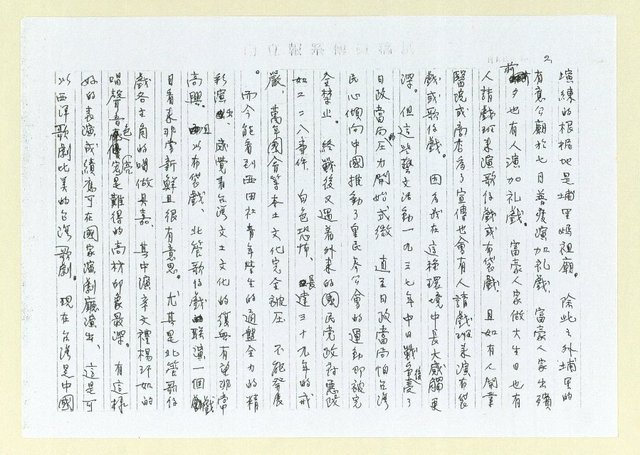 2.
演練的根據地是埔里媽祖廟。除此之外埔里的
有應公廟於七日普度演加礼戲、富豪人家出殯
前夕也有人演加礼戲。富豪人家做大生日也有
人請戲班來演歌仔戲或布袋戲、且如有人開業
醫院或商店為了宣傳也會有人請戲班來演布袋
戲或歌仔戲。因為我在這種環境中長大感觸更
深。但這些藝文活動一九三七年中日戰爭後
日政當局壓力開始式微 直至日政當局怕台湾
民心傾向中國推動了皇民奉公會的運動却被完
全禁止。終戰後又遇着外來的國民党政府惡政
如二二八事件 白色恐怖、長達三十九年的戒
嚴、萬年國會等本土文化完全被压 不能發展
。而今能看到西田社青年學生的通盤全力的精
彩演出、感覺着台湾文土文化的復興有望非常
高興。且以布袋戲、北管歌仔戲聯演一個戲
目看來非常新鮮且很有意思。尤其是北管歌仔
戲各主角的唱做具嘉、其中演辛文禮楊
唱聲音究是難得的高材印象最深。有這樣
好的表演成績應可在國家演劇廳演出、這是可
以西洋歌劇比美的台湾歌劇。現在台湾是中國